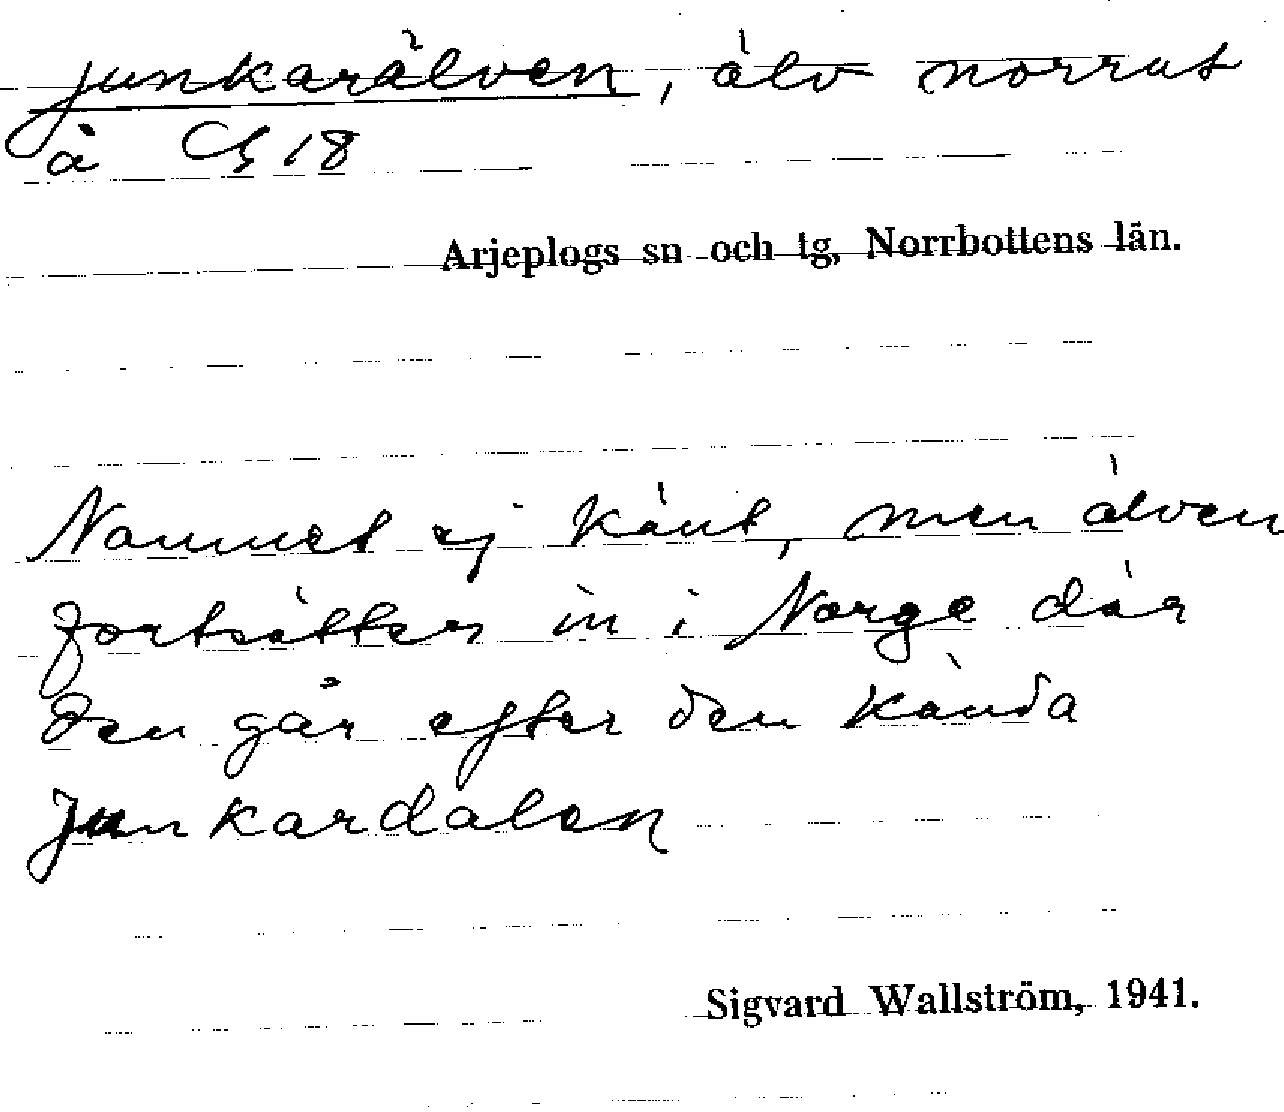 junkarälven, älv norrut
å G 18
Arjeplogs sn och tg, Norrbottens län.
Namnet ej känt, men älven
fortsätter in i Norge där
den går efter den kända
Junkardalen
Sigvard Wallström, 1941.